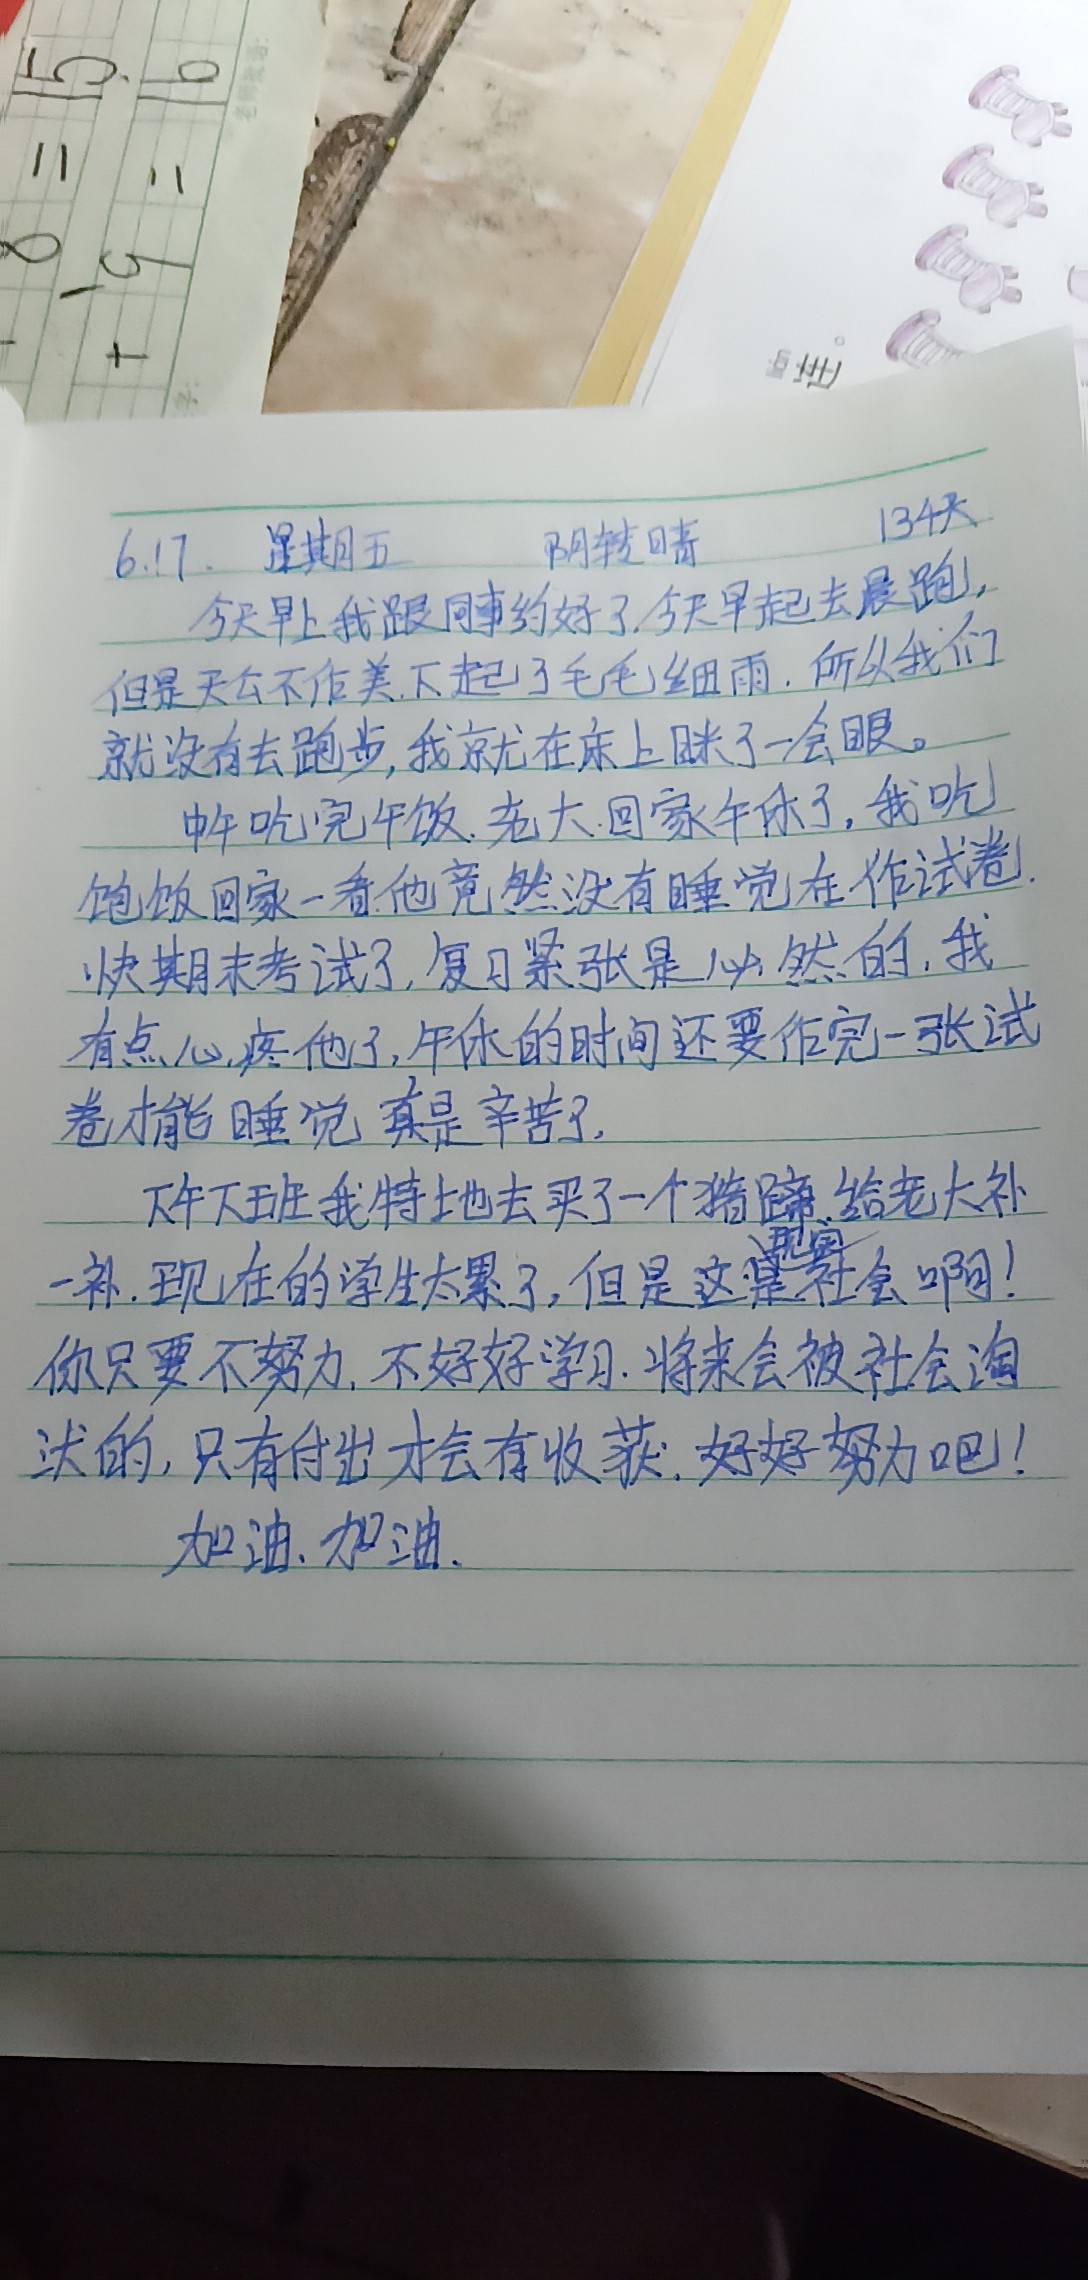 6.17. 星期五 阴转晴 134天
今天早上我跟同事约好了.今天早起去晨跑,
但是天公不作美.下起了毛毛细雨.所以我们
就没有去跑步,我就在床上眯了一会眼。
中午吃完午饭.老大.回家午休了,我吃
饱饭回家一看.他竟然没有睡觉在作试卷.
快期末考试了,复习紧张是必然的,我
有点心疼他了,午休的时间还要作完一张试
卷才能睡觉 真是辛苦了,
下午下班我特地去买了一个猪蹄.给老大补
一补.现在的学生太累了,但是这是现实社会啊!
你只要不努力,不好好学习.将来会被社会淘
汰的,只有付出才会有收获.好好努力吧!
加油、加油.